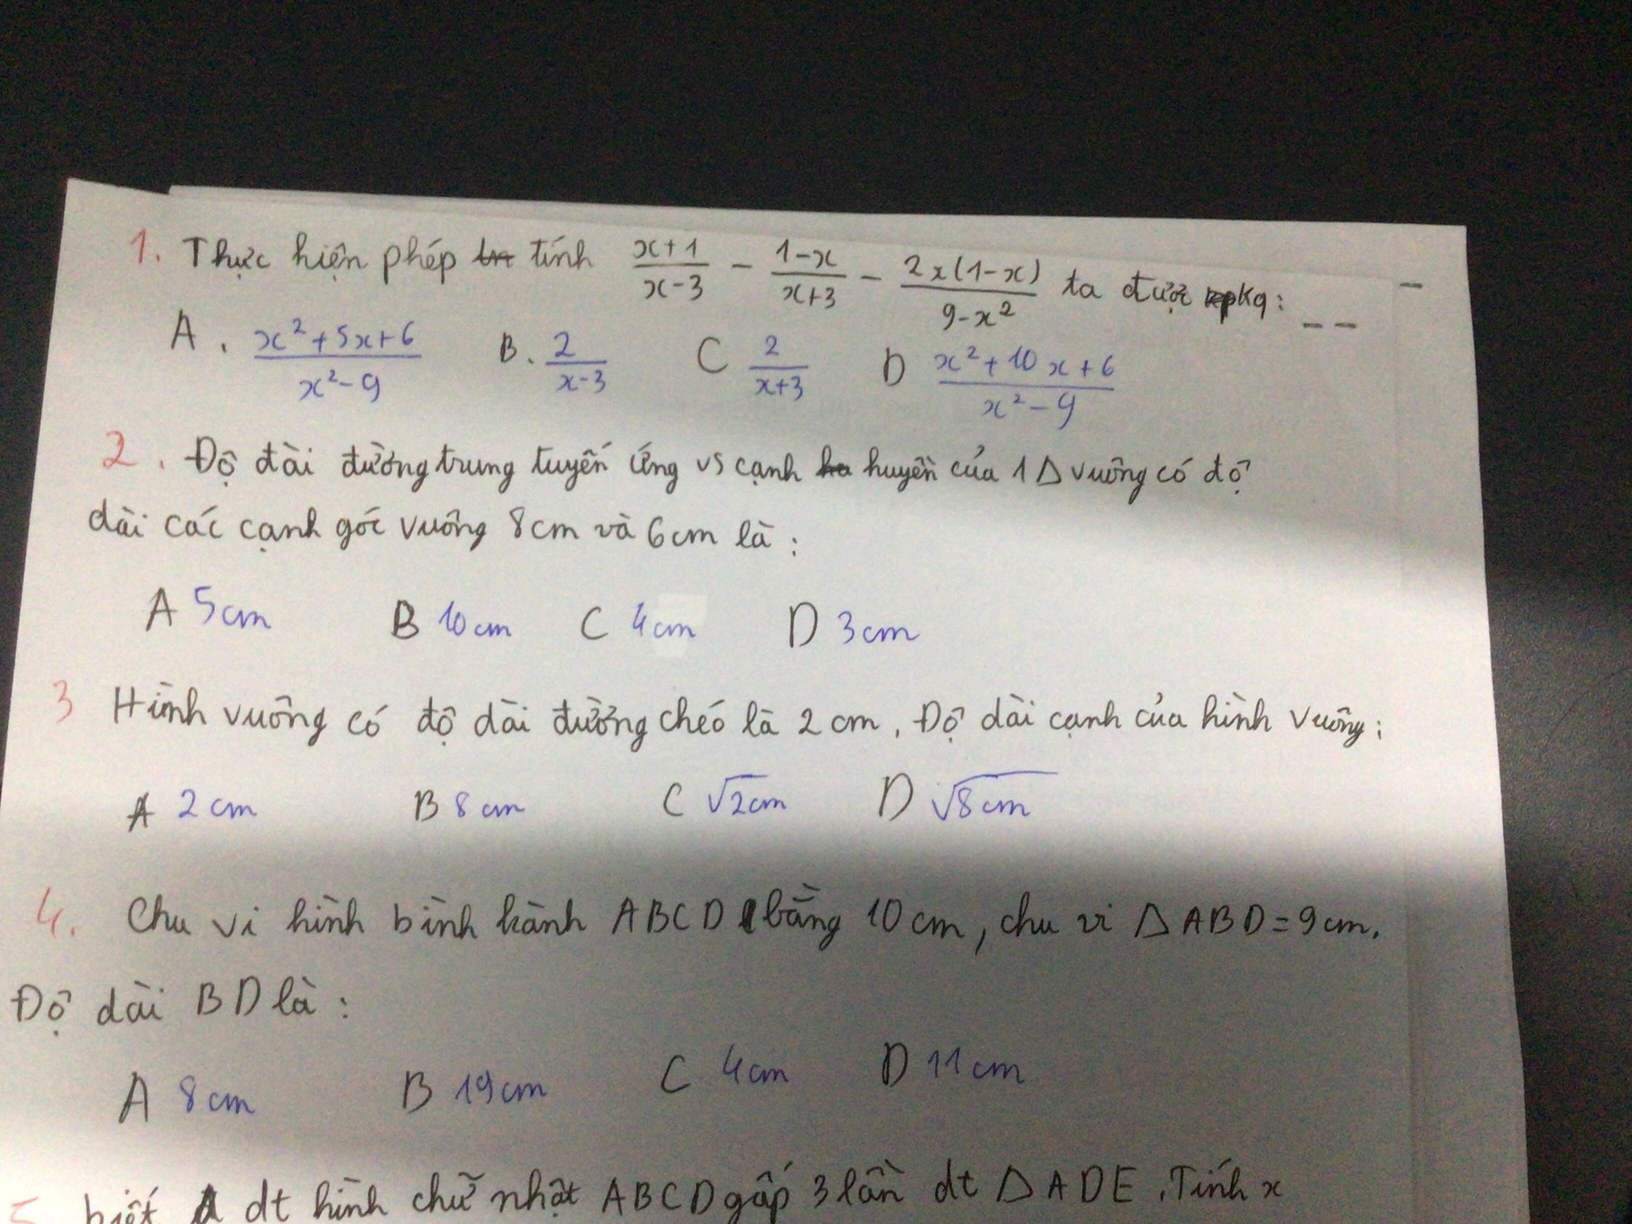 1. Thực hiện phép tính (x+1)/(x-3) - (1-x)/(x+3) - 2x(1-x)/(9-x²) ta được kq: _ _
A. (x²+5x+6)/(x²-9) B. 2/(x-3) C 2/(x+3) D (x²+10x+6)/(x²-9)
2. Độ đài đường trung tuyến ứng vs cạnh huyền của 1 Δ vuông có độ
dài các cạnh góc vuông 8cm và 6cm là:
A 5cm B 10cm C 4cm D 3cm
3 Hình vuông có độ dài đường chéo là 2 cm. Độ dài cạnh của hình vuông:
A 2 cm B 8 cm C √2cm D √8cm
4. Chu vi hình bình hành ABCD bằng 10 cm, chu vi Δ ABD = 9 cm.
Độ dài BD là:
A 8cm B 19cm C 4cm D 11cm
5 biết dt hình chữ nhật ABCD gấp 3 lần dt Δ ADE. Tính x